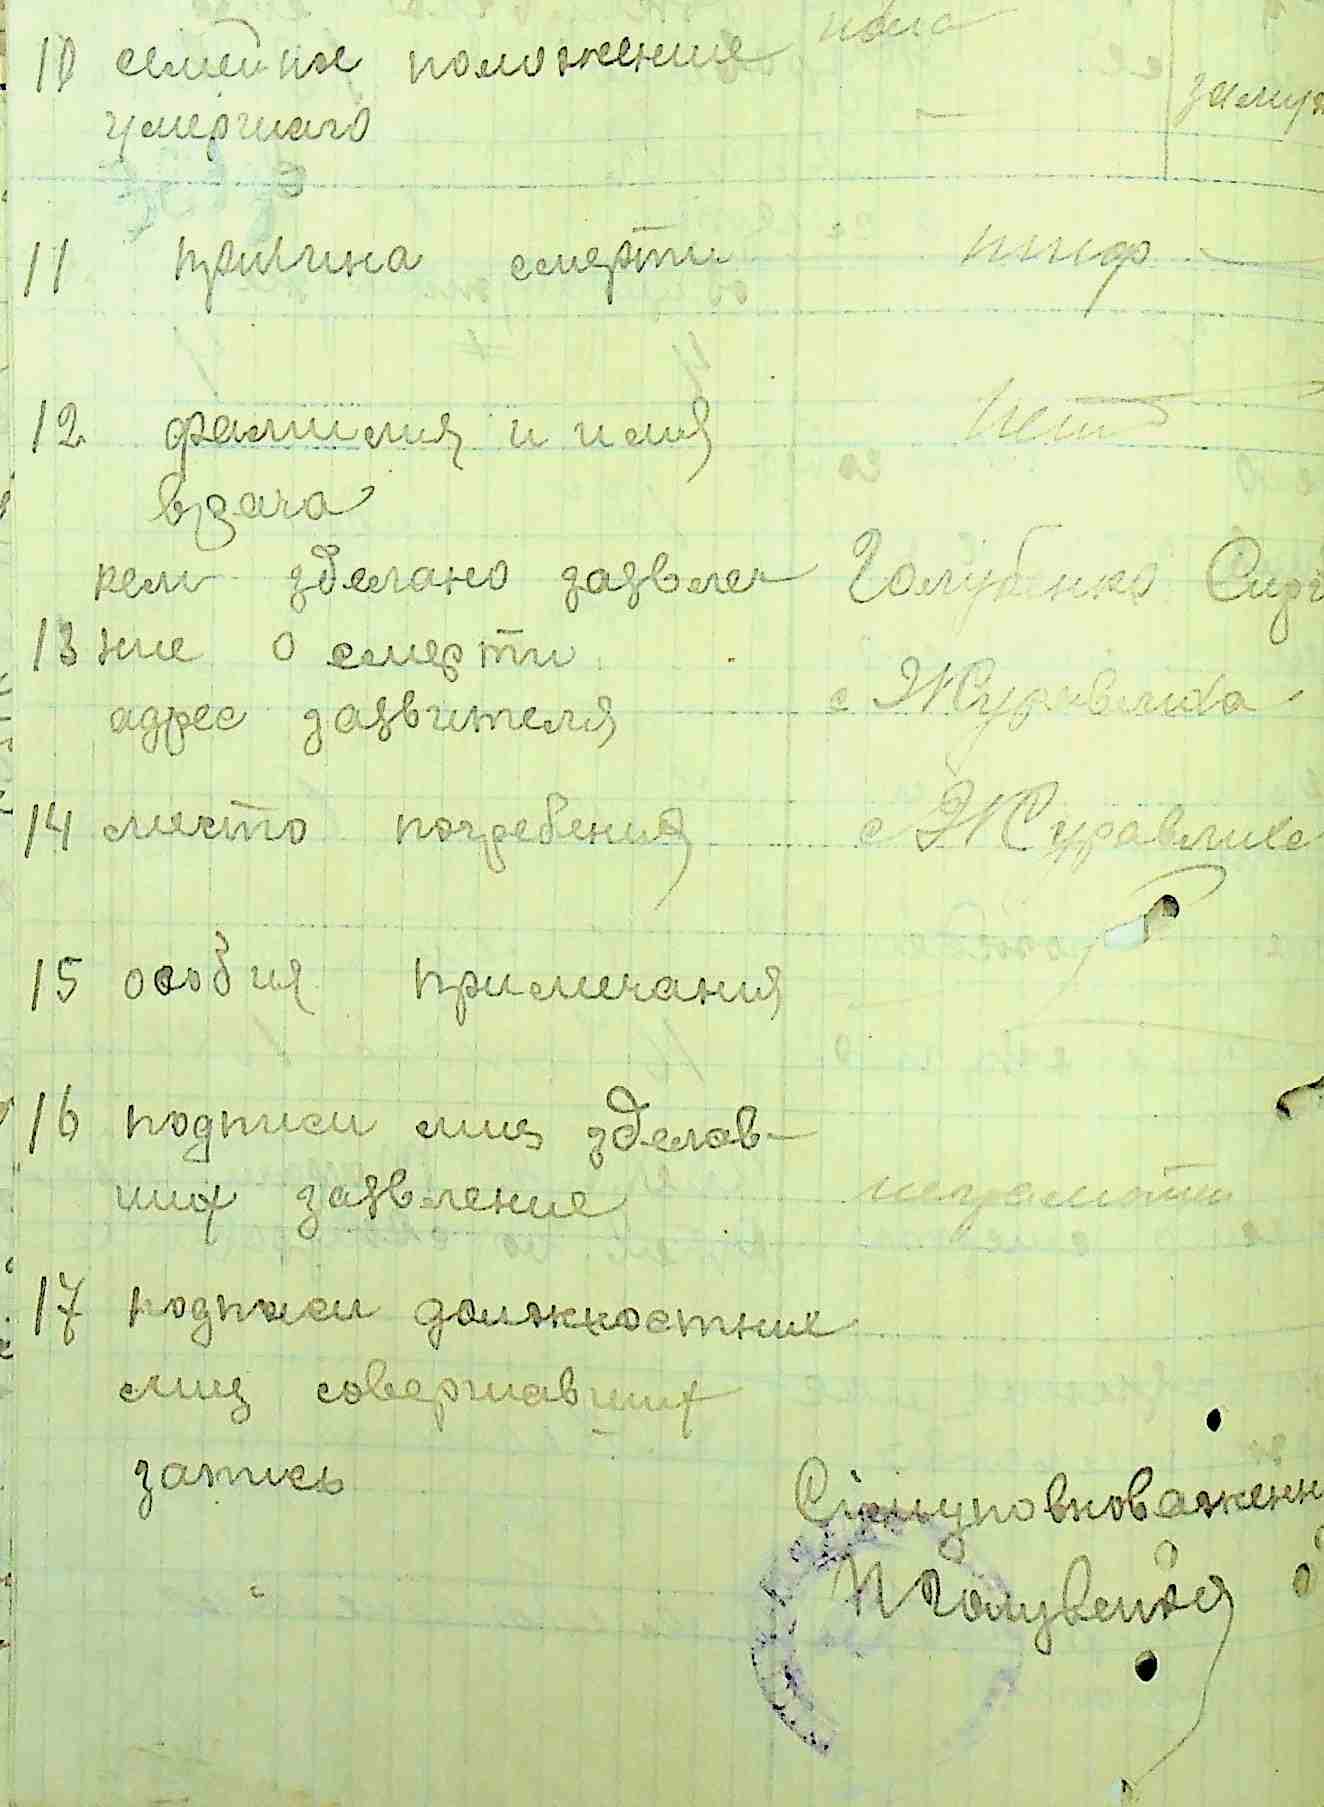 10 семейное положение
умершаго замуж
11 причина смерти тиф
12 фамилия и имя нет
врача
кем зделано заявле Голубенко Серг
13 ние о смерти
адрес заявителя с Журавлиха
14 место погребения с Журавлихе
15 особия примечания
16 подписи лиц зделав-
ших заявление неграмотни
17 подписи должностние
лиц совершавших
запись
Сількуповноваженн